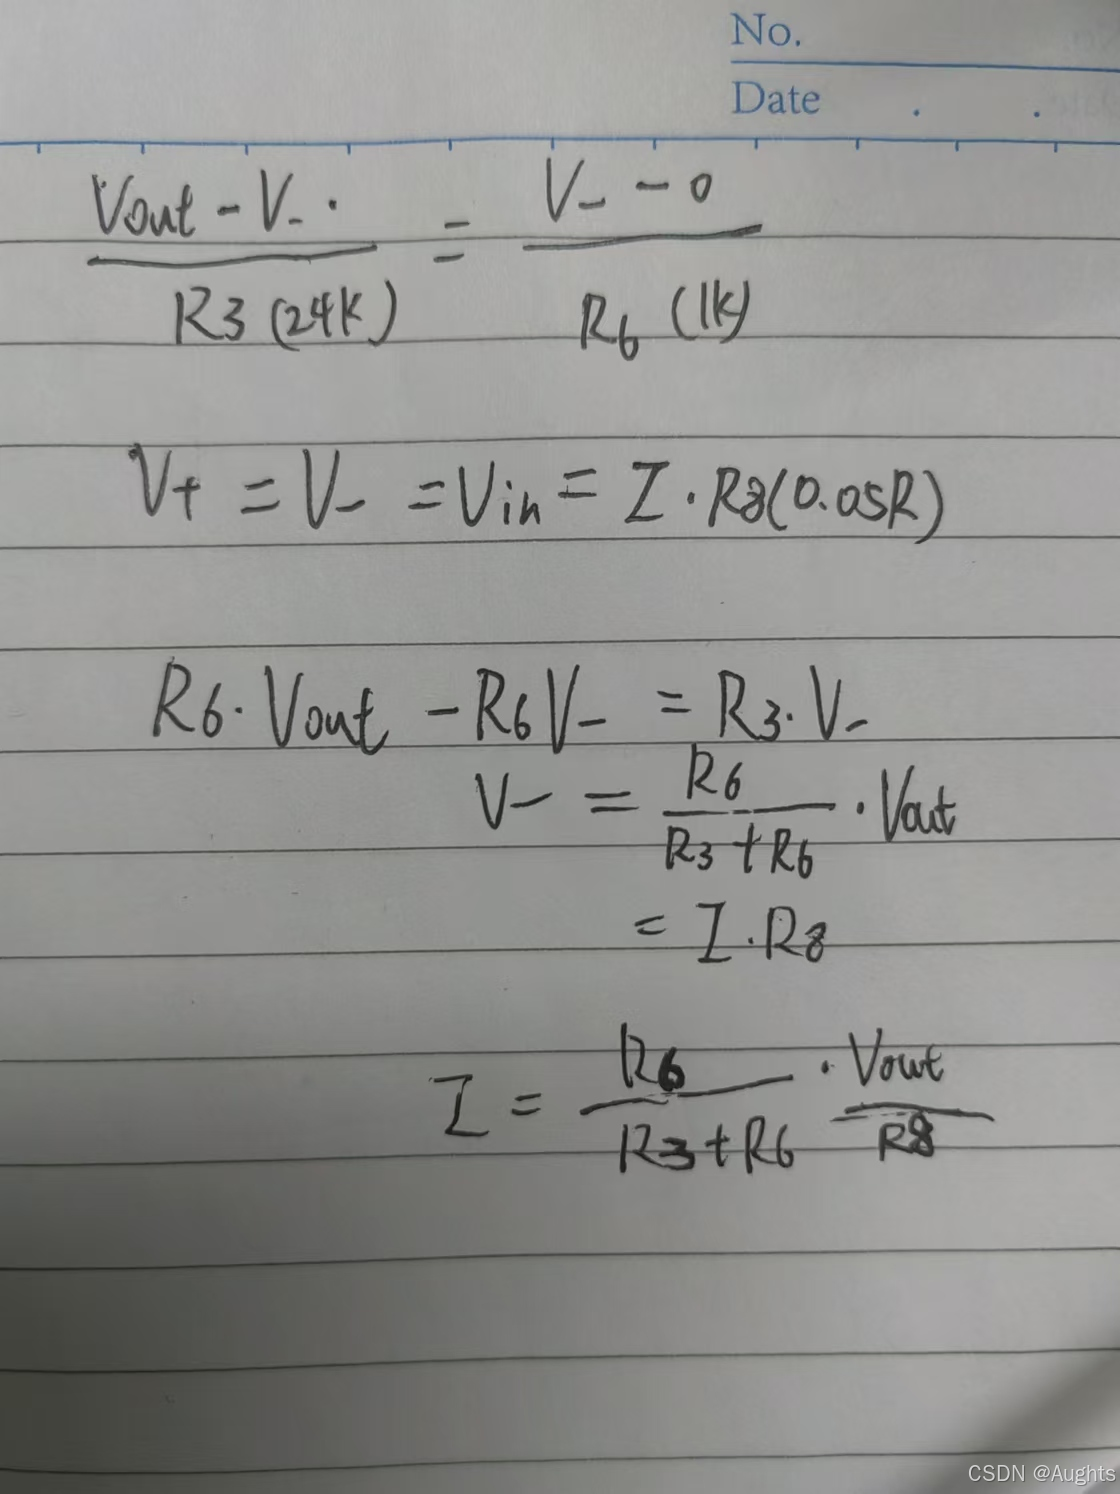 No.
Date . .
Vout - V- . / R3 (24K) = V- - 0 / R6 (1K)
V+ = V- = Vin = I · R8(0.05R)
R6 · Vout - R6 V- = R3 · V-
V- = R6 / R3 + R6 · Vout
= I · R8
I = R6 / R3 + R6 · Vout / R8
CSDN @Aughts